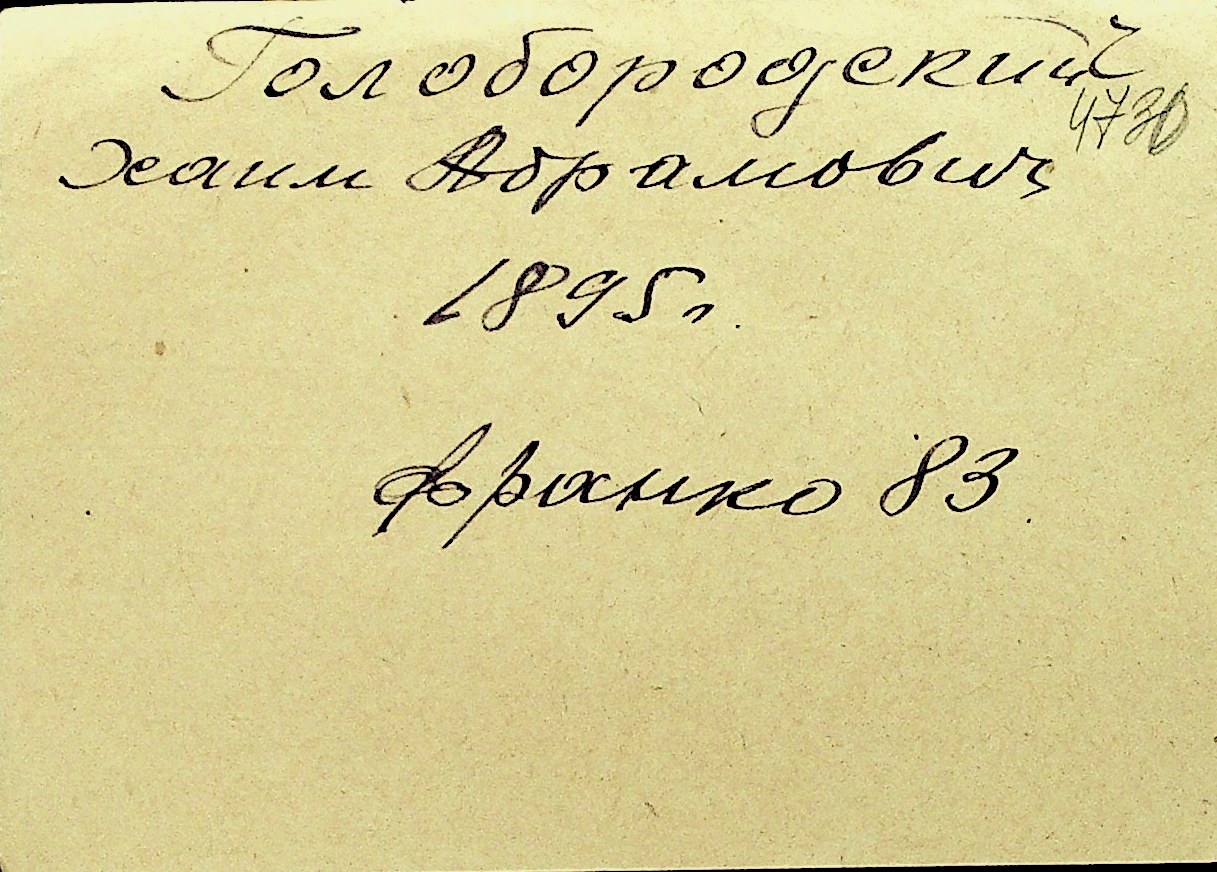 Голобородский
Хаим Абрамович
1895г.
Франко 83